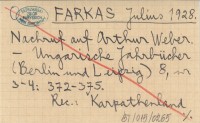 FARKAS Julius 1928.
Nachruf auf Arthur Weber.
– Ungarische Jahrbücher
(Berlin und Leipzig) 8, nr
3-4: 372-375.
Rec.: Karpathenland